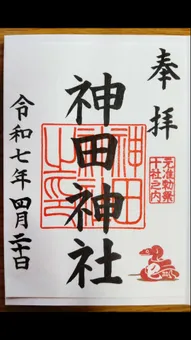 奉拝
准勅祭
十社之内
神田神社
令和七年四月二十日